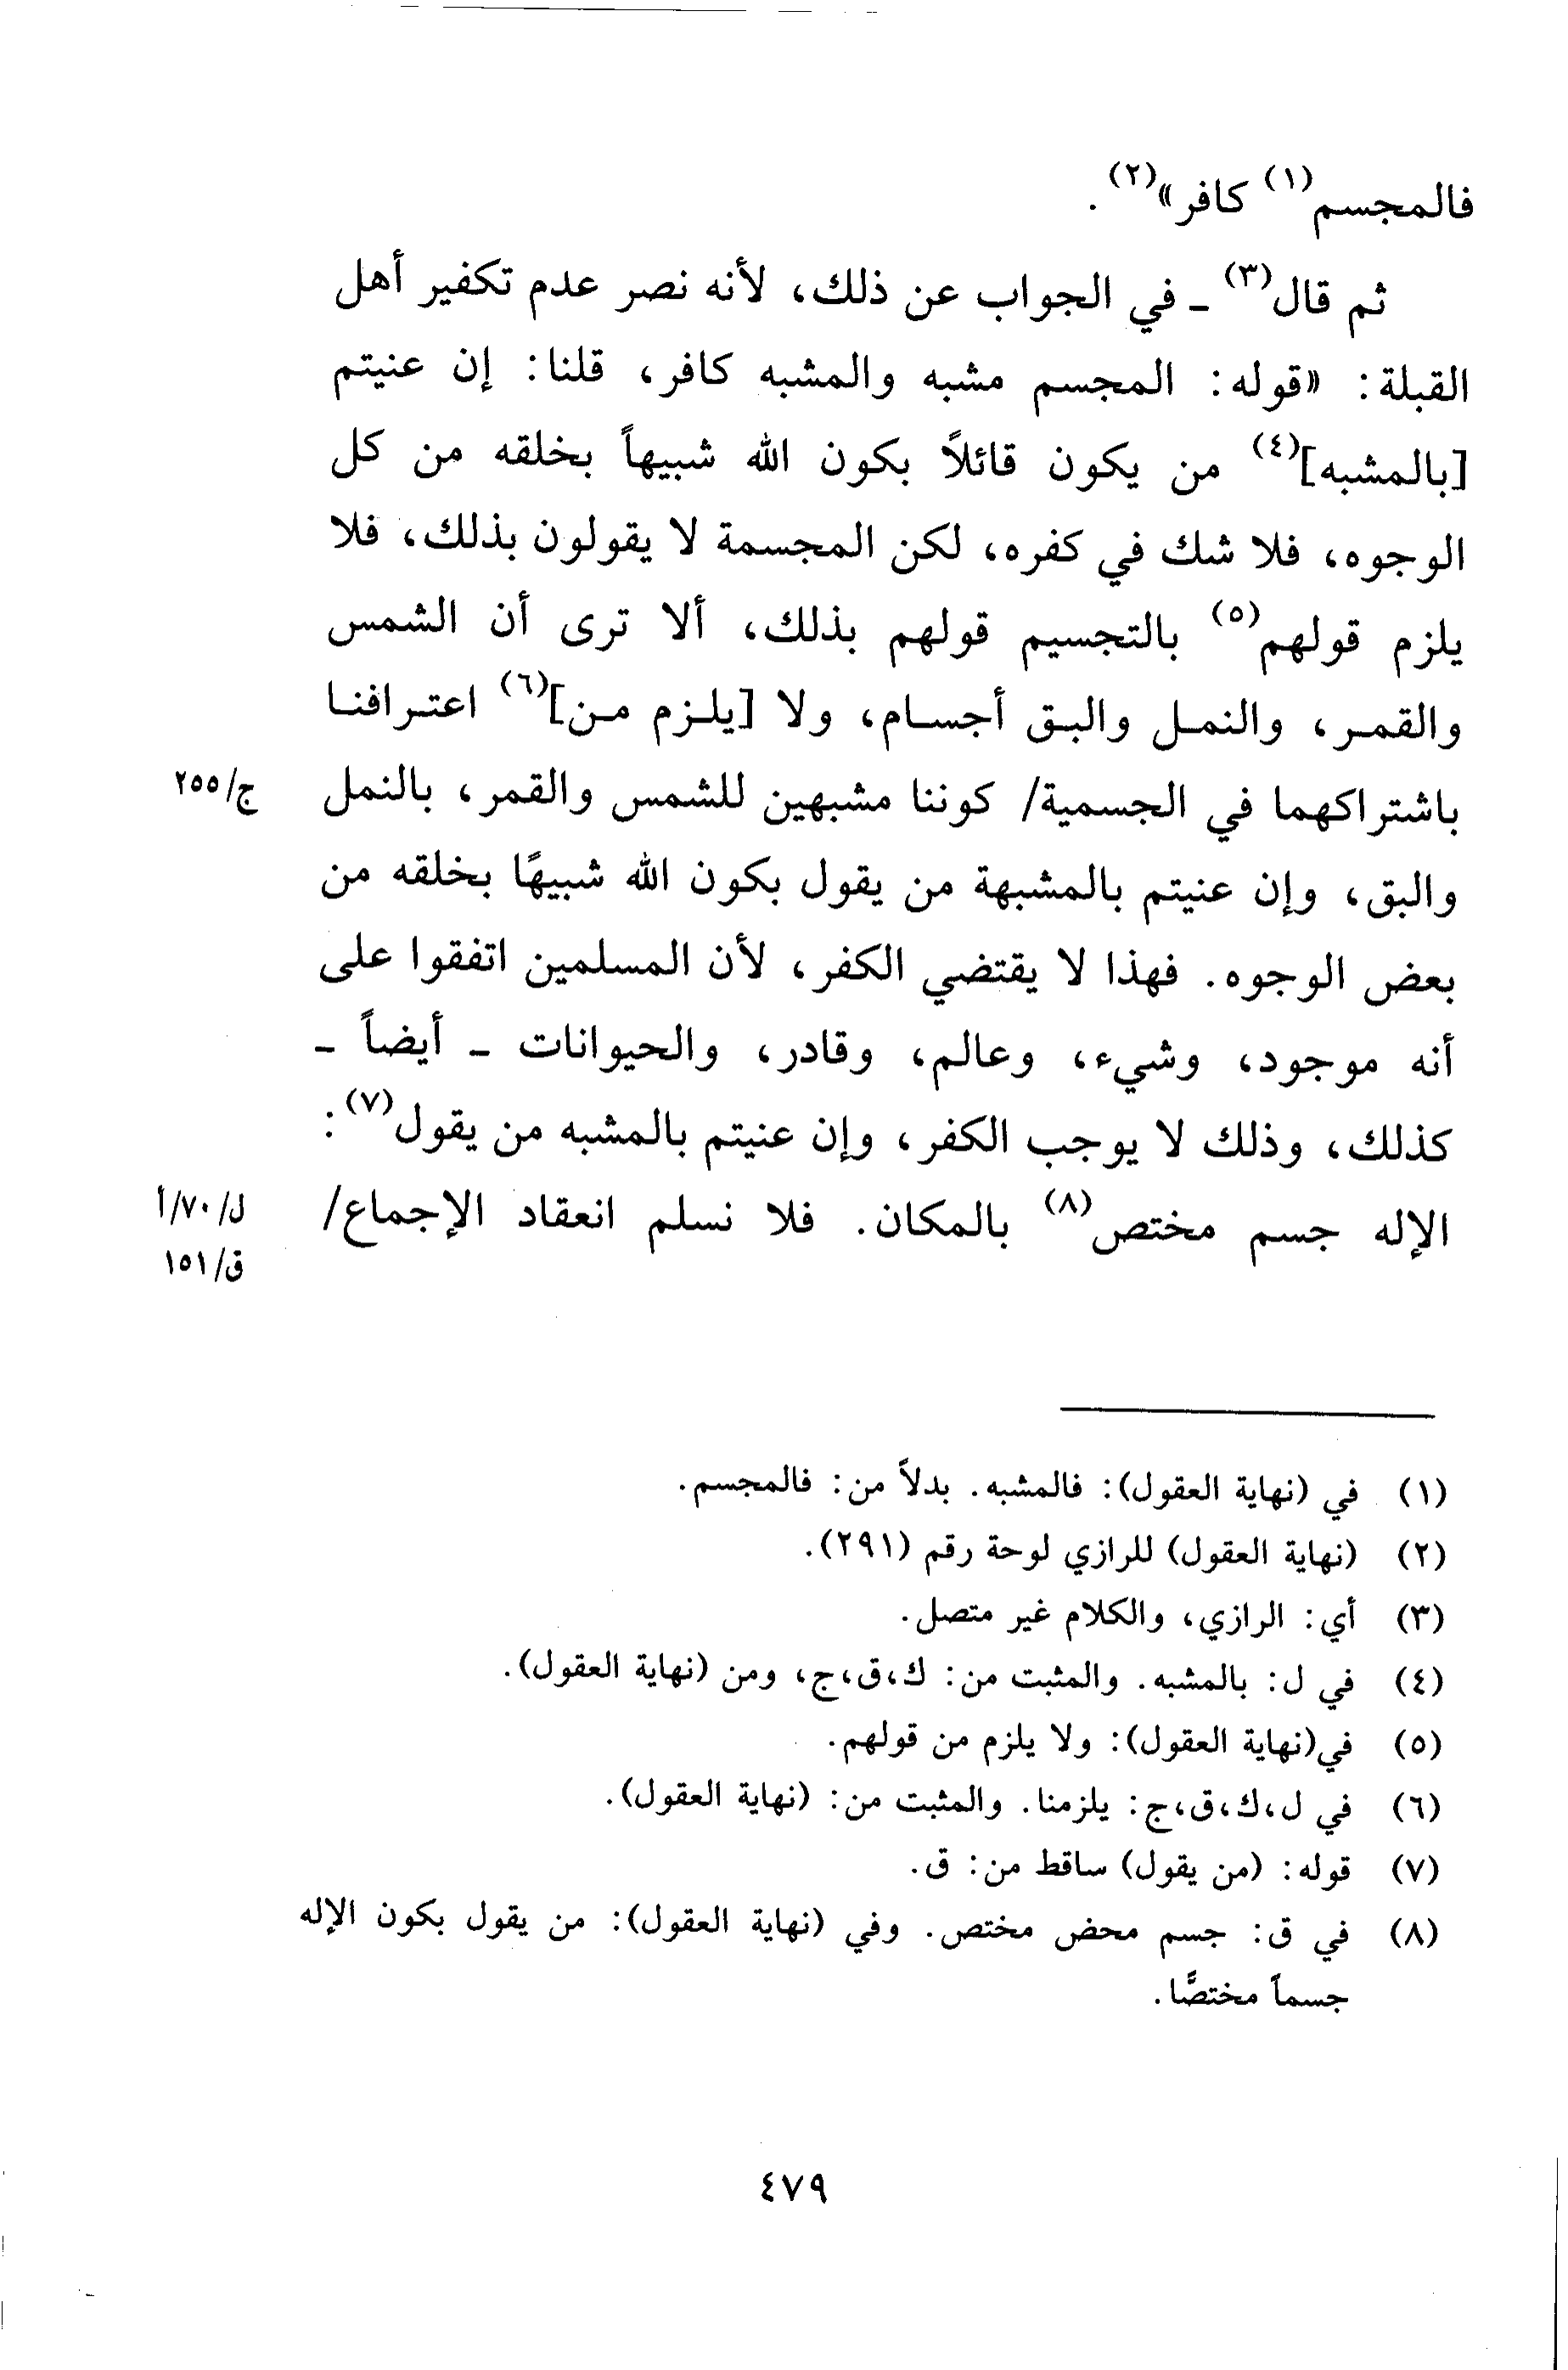 فالمجسم(١) كافر»(٢).
ثم قال(٣) - في الجواب عن ذلك، لأنه نصر عدم تكفير أهل
القبلة: «قوله: المجسم مشبه والمشبه كافر، قلنا: إن عنيتم
[بالمشبه](٤) من يكون قائلاً بكون الله شبيهاً بخلقه من كل
الوجوه، فلا شك في كفره، لكن المجسمة لا يقولون بذلك، فلا
يلزم قولهم(٥) بالتجسيم قولهم بذلك، ألا ترى أن الشمس
والقمر، والنمل والبق أجسام، ولا [يلزم من](٦) اعترافنا
باشتراكهما في الجسمية/ كوننا مشبهين للشمس والقمر، بالنمل
ج/٢٥٥
والبق، وإن عنيتم بالمشبهة من يقول بكون الله شبيهًا بخلقه من
بعض الوجوه. فهذا لا يقتضي الكفر، لأن المسلمين اتفقوا على
أنه موجود، وشيء، وعالم، وقادر، والحيوانات - أيضاً -
كذلك، وذلك لا يوجب الكفر، وإن عنيتم بالمشبه من يقول(٧):
الإله جسم مختص(٨) بالمكان. فلا نسلم انعقاد الإجماع/
ل/٧٠/أ
ق/١٥١
(١) في (نهاية العقول): فالمشبه. بدلاً من: فالمجسم.
(٢) (نهاية العقول) للرازي لوحة رقم (٢٩١).
(٣) أي: الرازي، والكلام غير متصل.
(٤) في ل: بالمشبه. والمثبت من: ك،ق،ج، ومن (نهاية العقول).
(٥) في(نهاية العقول): ولا يلزم من قولهم.
(٦) في ل،ك،ق،ج: يلزمنا. والمثبت من: (نهاية العقول).
(٧) قوله: (من يقول) ساقط من: ق.
(٨) في ق: جسم محض مختص. وفي (نهاية العقول): من يقول بكون الإله
جسماً مختصًّا.
٤٧٩